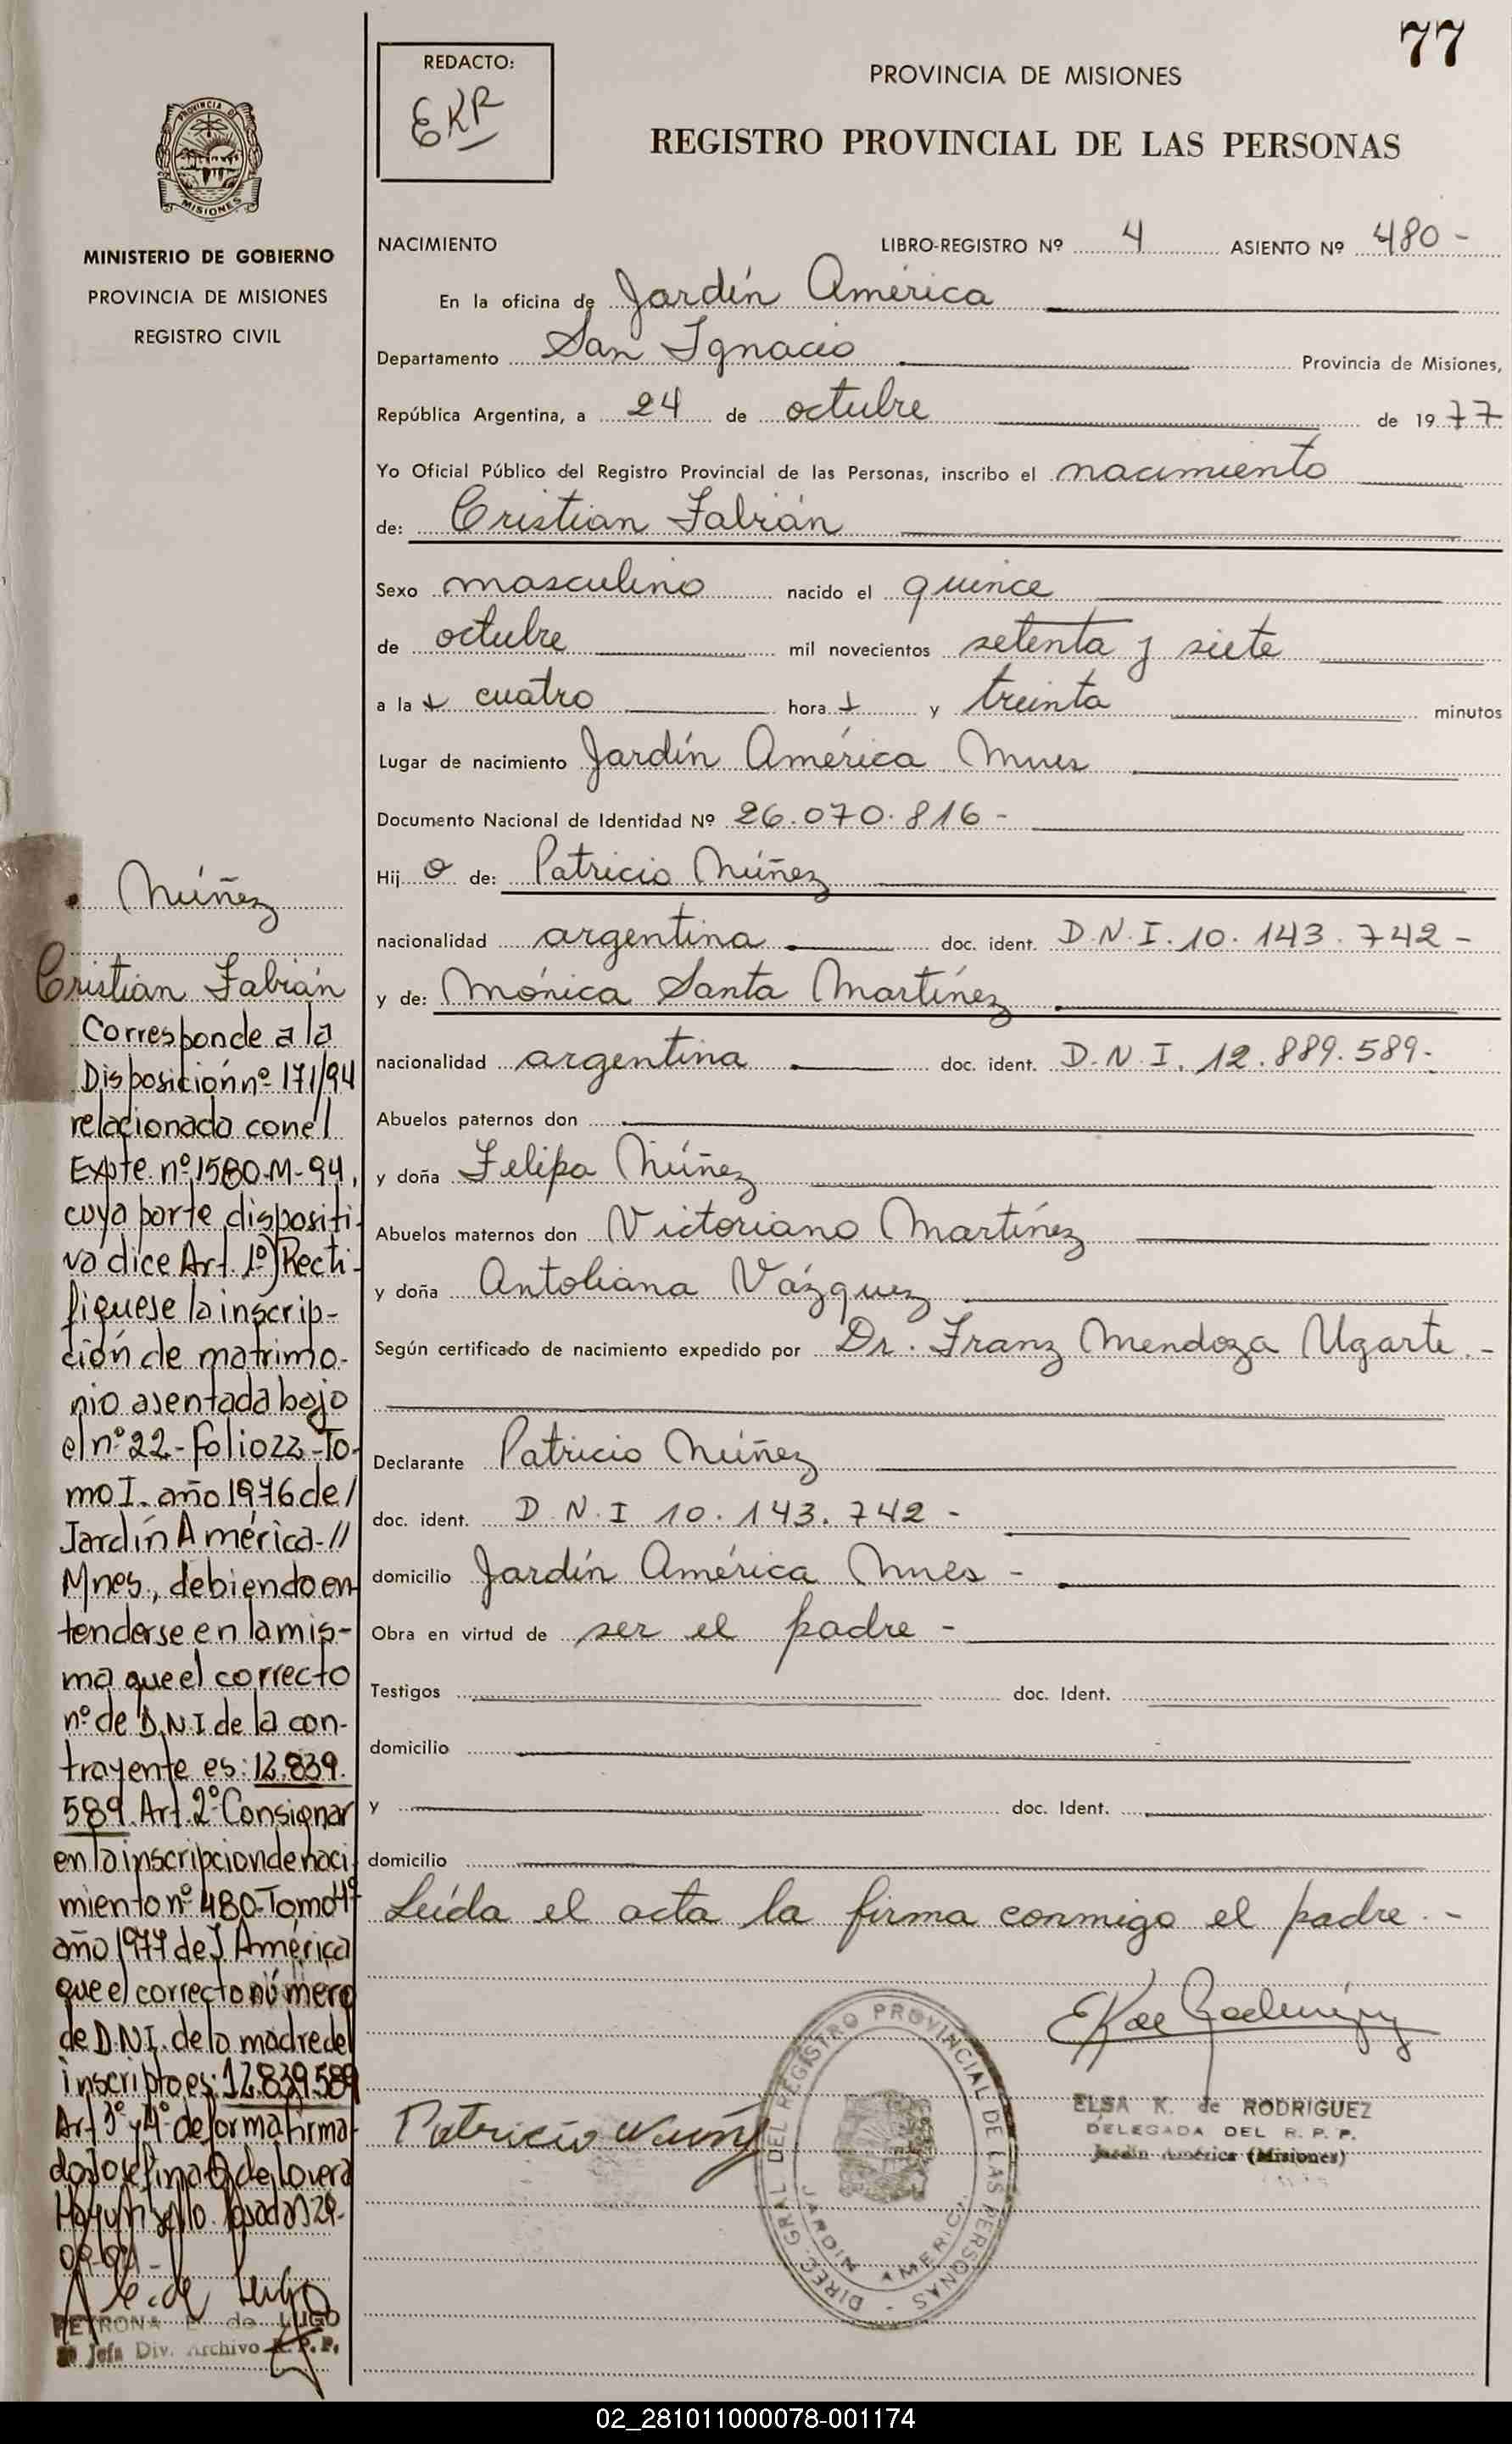 77
REDACTO:
EKR
PROVINCIA DE MISIONES
REGISTRO PROVINCIAL DE LAS PERSONAS
PROVINCIA DE
MISIONES
MINISTERIO DE GOBIERNO
PROVINCIA DE MISIONES
REGISTRO CIVIL
NACIMIENTO LIBRO-REGISTRO Nº 4 ASIENTO Nº 480 -
En la oficina de Jardín América
Departamento San Ignacio Provincia de Misiones,
República Argentina, a 24 de octubre de 1977
Yo Oficial Público del Registro Provincial de las Personas, inscribo el nacimiento
de: Cristian Fabián
Sexo masculino nacido el quince
de octubre mil novecientos setenta y siete
a la s cuatro hora s y treinta minutos
Lugar de nacimiento Jardín América Mnes
Documento Nacional de Identidad Nº 26.070.816 -
Hij o de: Patricio Núñez
nacionalidad argentina doc. ident. D.N.I. 10.143.742 -
y de: Mónica Santa Martínez
nacionalidad argentina doc. ident. D.N.I. 12.889.589-
Abuelos paternos don
y doña Felipa Núñez
Abuelos maternos don Victoriano Martínez
y doña Antoliana Vázquez
Según certificado de nacimiento expedido por Dr. Franz Mendoza Ugarte.-
Declarante Patricio Núñez
doc. ident. D.N.I 10.143.742 -
domicilio Jardín América Mnes -
Obra en virtud de ser el padre -
Testigos doc. Ident.
domicilio
y doc. Ident.
domicilio
Leída el acta la firma conmigo el padre.-
Patricio Nuñez
DIREC. GRAL DEL REGISTRO PROVINCIAL DE LAS PERSONAS -
JARDIN AMERICA
ELSA K. de RODRIGUEZ
DELEGADA DEL R. P. P.
Jardín América (Misiones)
Núñez
Cristian Fabián
Corresponde a la
Disposición nº 171/94
relacionada con el
Expte. nº 1580-M-94,
cuya parte dispositi-
va dice Art. 1º) Recti-
fiquese la inscrip-
ción de matrimo-
nio asentada bajo
el nº 22-Folio 22-To-
mo I. año 1976 de/
Jardín América-//
Mnes., debiendo en-
tenderse en la mis-
ma que el correcto
nº de D.N.I de la con-
trayente es: 12.839.
589. Art. 2º Consignar
en la inscripcion de naci-
miento nº 480-Tomo 4º
año 1977 de J. América
que el correcto número
de D.N.I. de la madre del
inscripto es: 12.839.589
Art 3º y 4º de forma firma-
do Josefina de Lovera
Hay un sello. Posadas 29-
PETRONA de LUGO
Jefa Div. Archivo R. P. P.
02_281011000078-001174